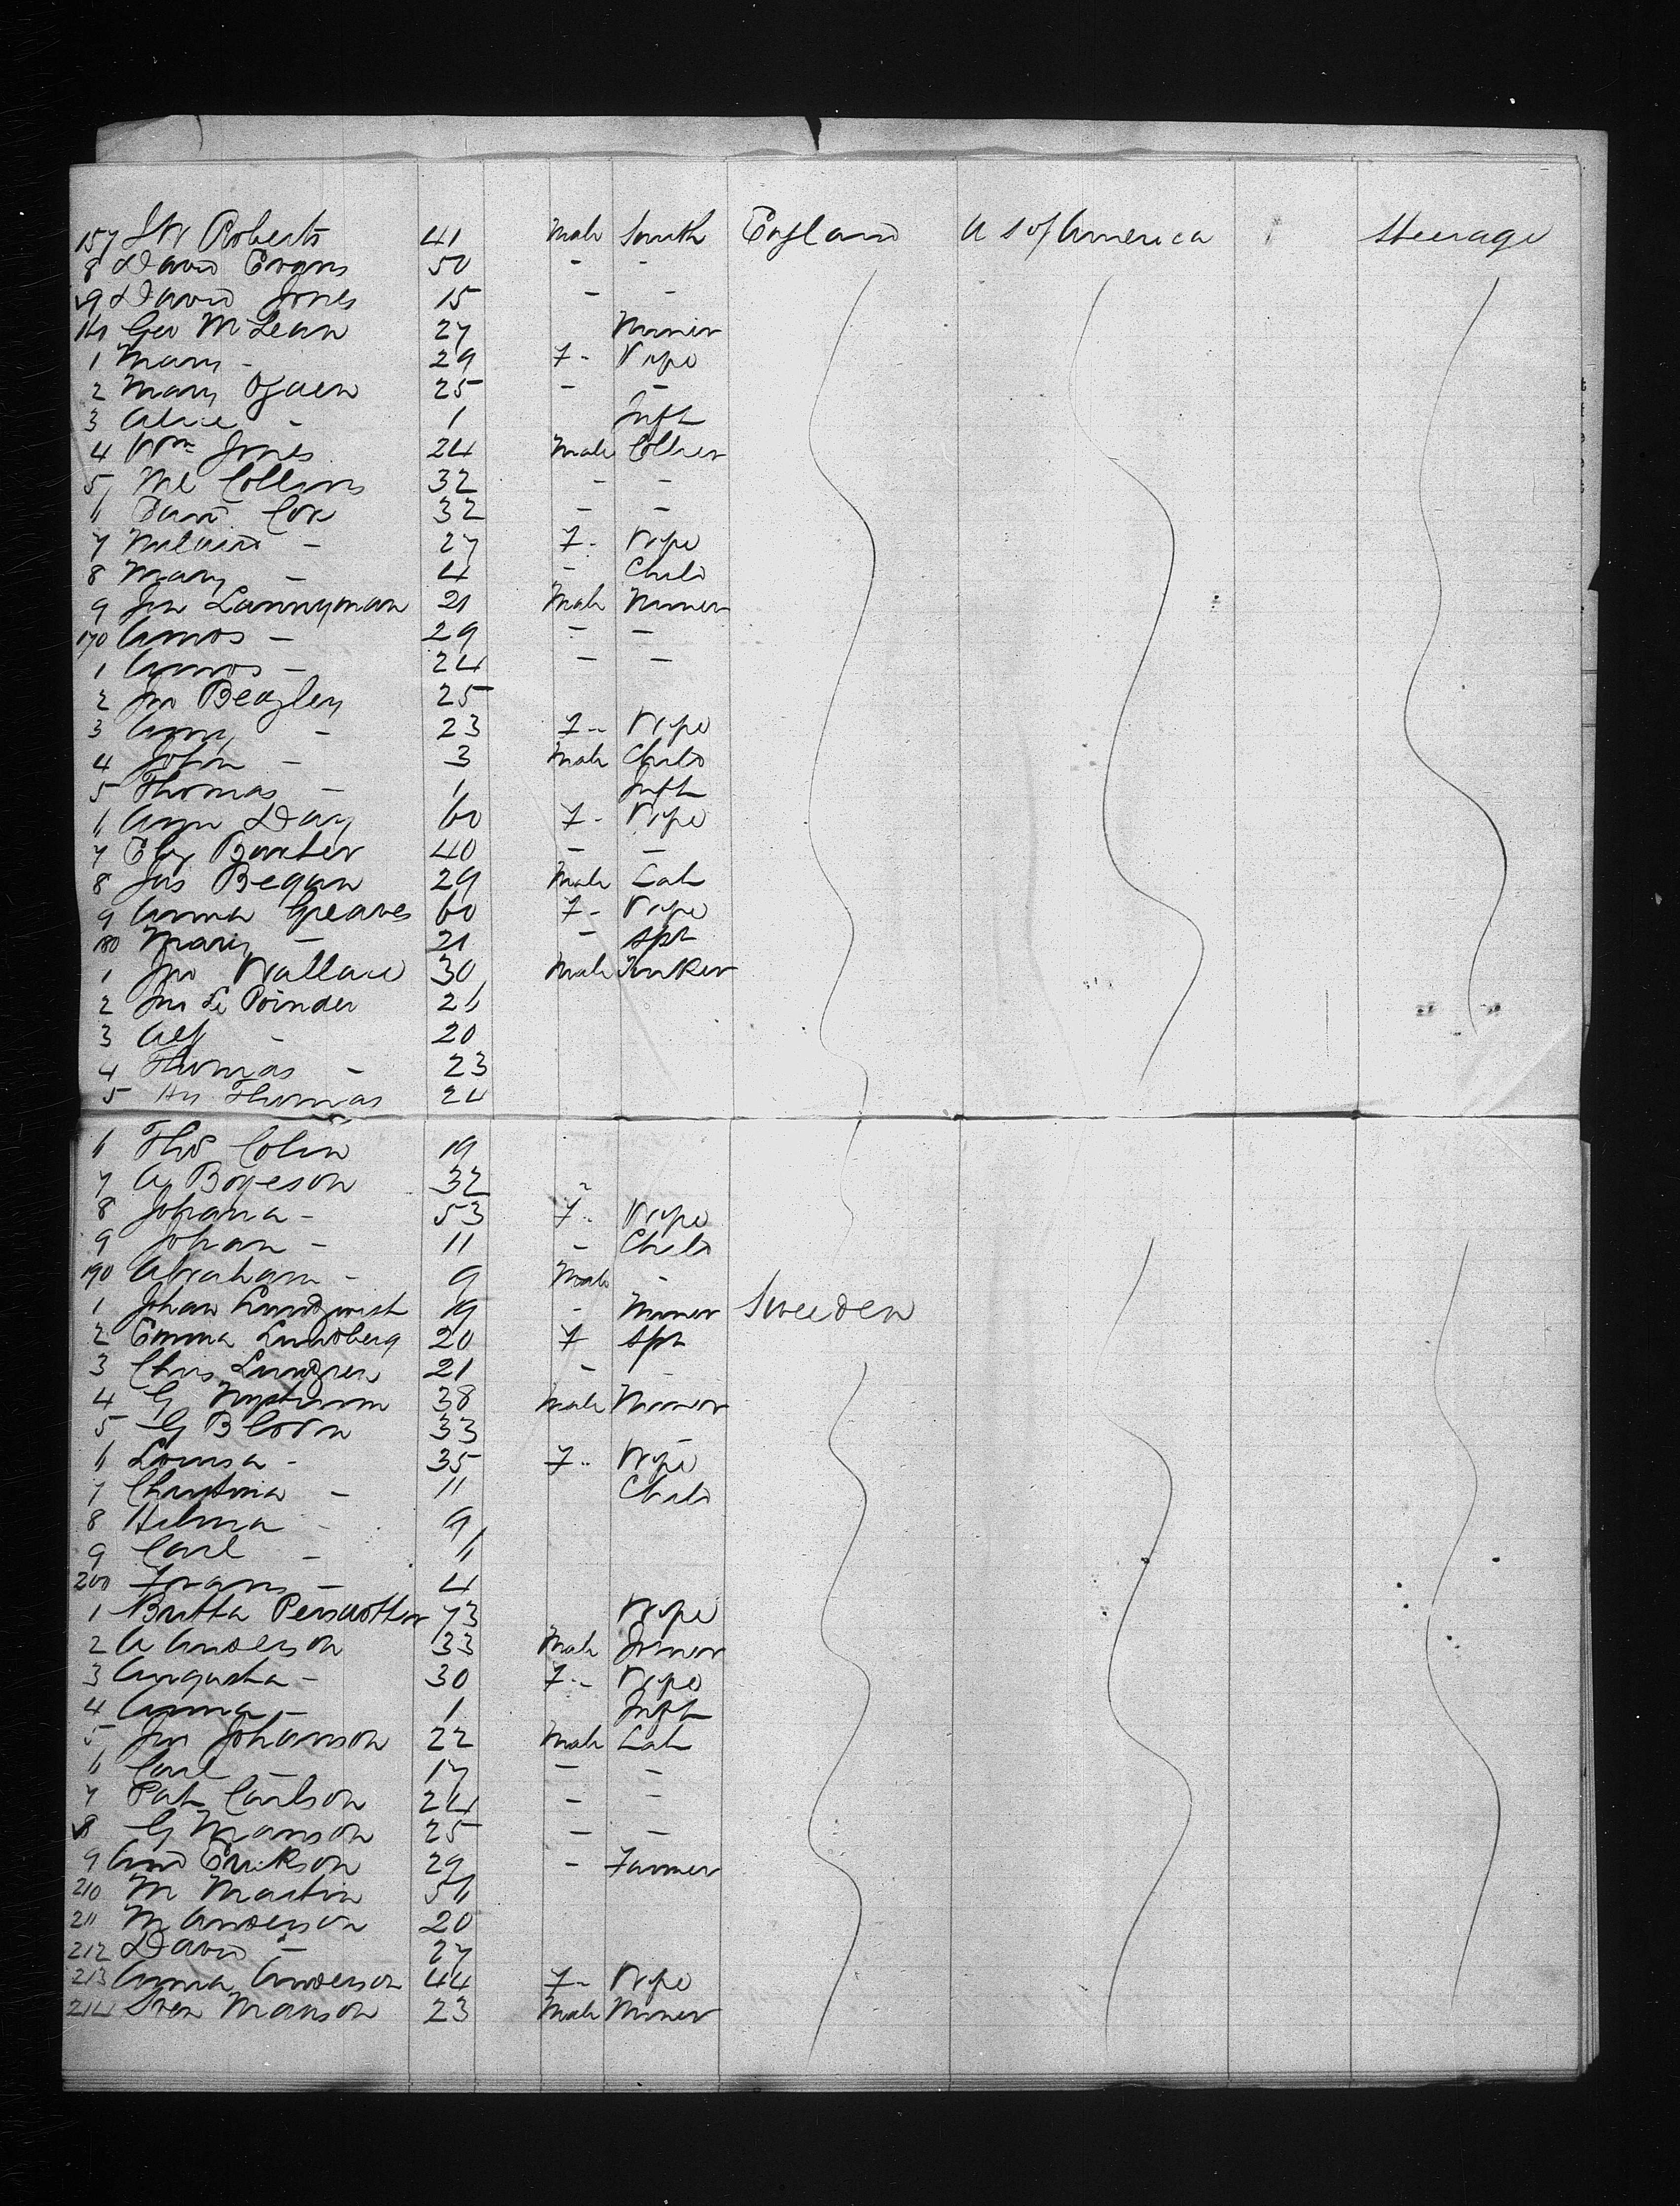 157 J W Roberts 41 Male Smith England U S of America Steerage
8 David Evans 50 - -
9 David Jones 15 - -
160 Geo McLean 27 Miner
1 Mary - 29 F- Wife
2 Mary 25 - -
3 Alice - 1 Inft
4 Wm Jones 24 Male Collier
5 Ml Collins 32 - -
6 Cox 32 - -
7 - 27 F- Wife
8 Mary - 4 - Child
9 Jno Lannyman 21 Male Miner
170 Amos - 29 - -
1 Amos - 24 - -
2 Jno Beazley 25
3 Amy - 23 F- Wife
4 John - 3 Male Child
5 Thomas - 1 Inft
6 Ann Day 60 F- Wife
7 Eliz Baxter 40 - -
8 Jas Began 29 Male Lab
9 Anna Greaves 60 F- Wife
180 Mary - 21 - Spr
1 Jno Wallace 30 Male Tinker
2 Jno Le Poinder 26
3 Alf - 20
4 Thomas - 23
5 Hy Thomas 24
6 Thos Colin 19
7 A Boyeson 32
8 Johana - 53 F- Wife
9 Johan - 11 - Child
190 Abraham - 9 Male -
1 Johan Lundqvist 19 - Miner Sweeden
2 Emma Lundberg 20 F Spr
3 Chris Lundgren 21 -
4 G Nystrom 38 Male Miner
5 G Blom 33 -
6 Lovisa - 35 F- Wife
7 Christina - 11 Child
8 Hilma - 9
9 Carl - 6
200 Frans - 4
1 Britta Persdotter 73 Wife
2 A Anderson 33 Male Joiner
3 Augusta - 30 F- Wife
4 Anna - 1 Inft
5 Jno Johanson 22 Male Lab
6 Carl - 17 - -
7 Pat Carlson 24 - -
8 G Manson 25 - -
9 And Erikson 29 - Farmer
210 M Martin 56
211 M Anderson 20
212 David - 27
213 Anna Anderson 44 F- Wife
214 Sven Manson 23 Male Miner